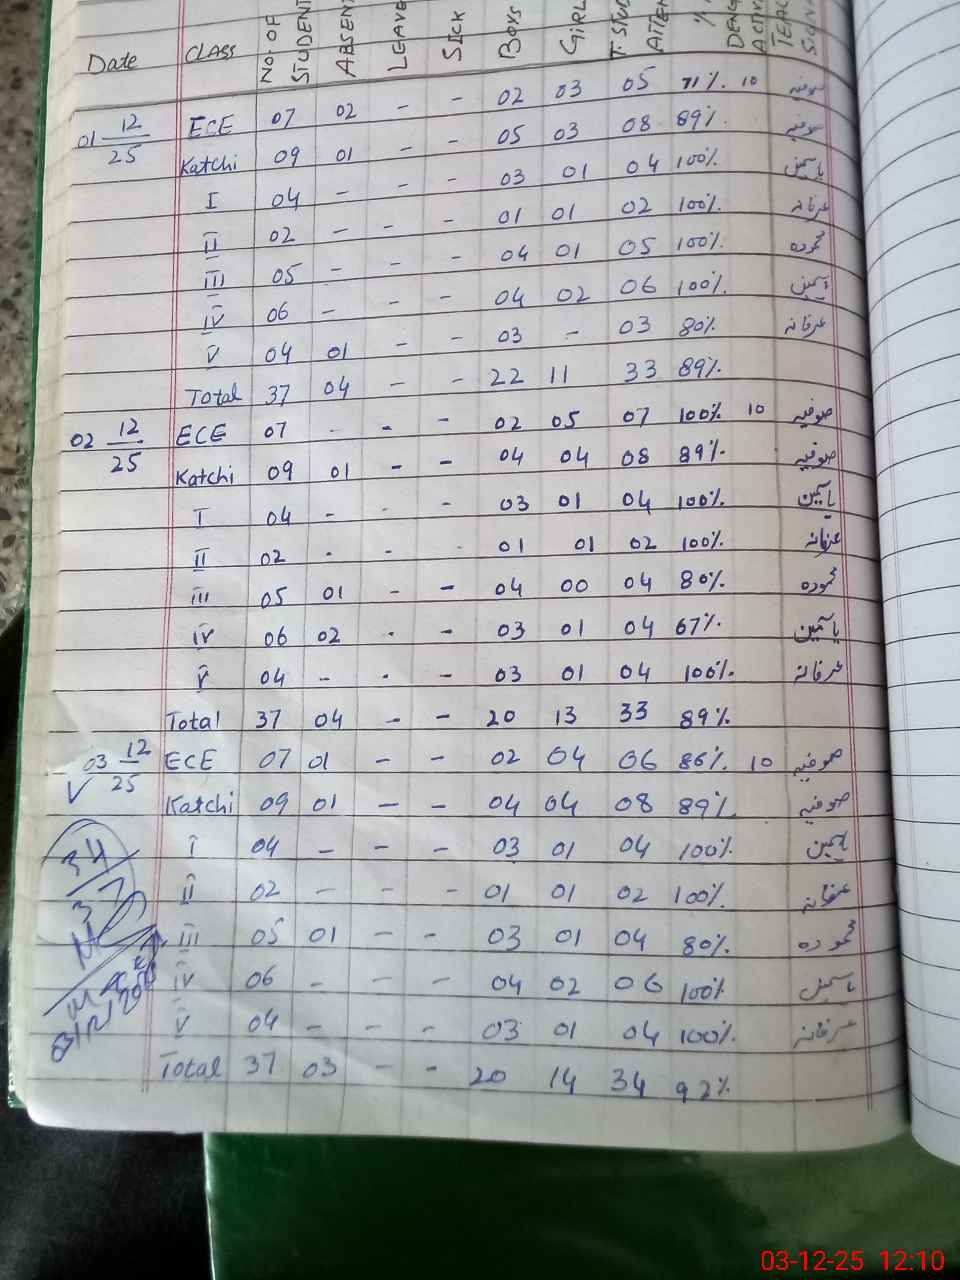 Date CLASS NO. OF STUDENT ABSENT LEAVE SICK BOYS GIRL T. STU ATTEN % DENG ACTIV TEAC SIGN
01 12/25 ECE 07 02 - - 02 03 05 71% 10 صوفیہ
Katchi 09 01 - - 05 03 08 89% صوفیہ
I 04 - - - 03 01 04 100% یاسمین
II 02 - - - 01 01 02 100% عرفانہ
III 05 - - - 04 01 05 100% محمودہ
IV 06 - - - 04 02 06 100% یاسمین
V 04 01 - - 03 - 03 80% عرفانہ
Total 37 04 - - 22 11 33 89%
02 12/25 ECE 07 - - - 02 05 07 100% 10 صوفیہ
Katchi 09 01 - - 04 04 08 89% صوفیہ
I 04 - - - 03 01 04 100% یاسمین
II 02 - - - 01 01 02 100% عرفانہ
III 05 01 - - 04 00 04 80% محمودہ
IV 06 02 - - 03 01 04 67% یاسمین
V 04 - - - 03 01 04 100% عرفانہ
Total 37 04 - - 20 13 33 89%
03 12/25 ECE 07 01 - - 02 04 06 86% 10 صوفیہ
Katchi 09 01 - - 04 04 08 89% صوفیہ
I 04 - - - 03 01 04 100% یاسمین
II 02 - - - 01 01 02 100% عرفانہ
III 05 01 - - 03 01 04 80% محمودہ
IV 06 - - - 04 02 06 100% یاسمین
V 04 - - - 03 01 04 100% عرفانہ
Total 37 03 - - 20 14 34 92%
34/37
03/12/2025
03-12-25 12:10